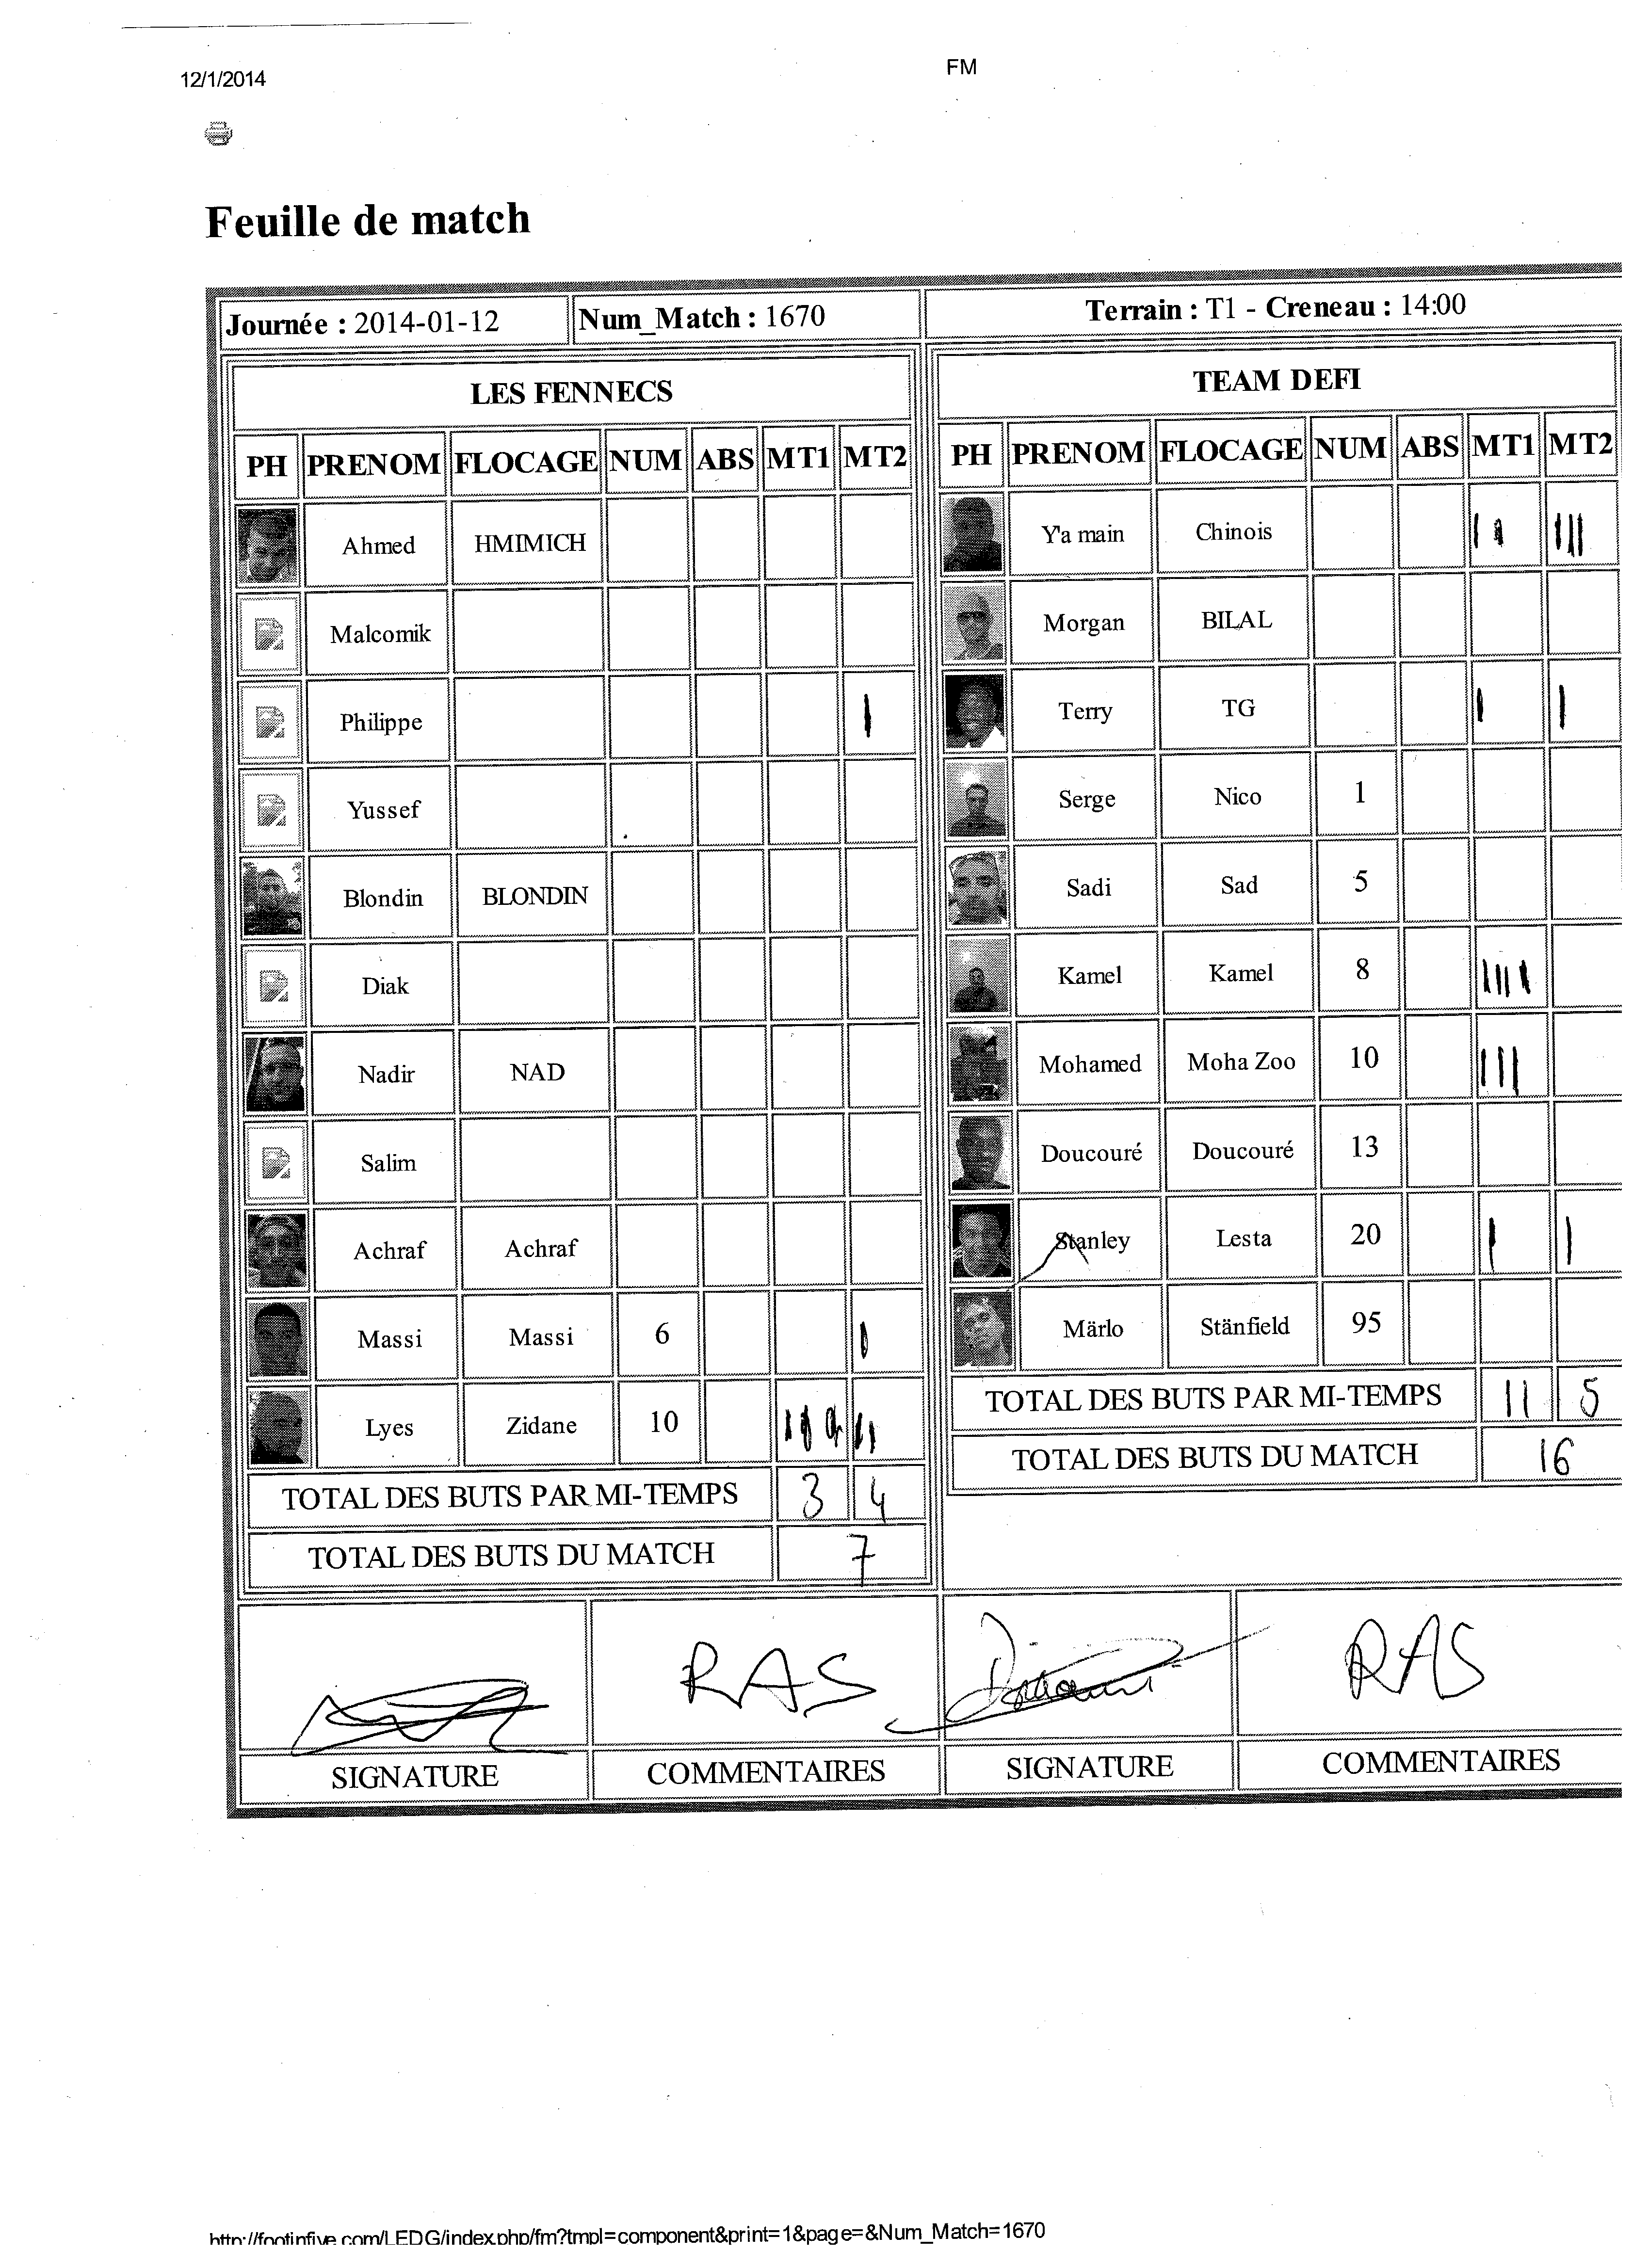 12/1/2014
FM
Feuille de match
Journée : 2014-01-12
Num_Match : 1670
Terrain : T1 - Creneau : 14:00
LES FENNECS
PH PRENOM FLOCAGE NUM ABS MT1 MT2
Ahmed HMIMICH
Malcomik
Philippe
Yussef
Blondin BLONDIN
Diak
Nadir NAD
Salim
Achraf Achraf
Massi Massi 6
Lyes Zidane 10
TOTAL DES BUTS PAR MI-TEMPS 3 4
TOTAL DES BUTS DU MATCH 7
TEAM DEFI
PH PRENOM FLOCAGE NUM ABS MT1 MT2
Y'a main Chinois
Morgan BILAL
Terry TG
Serge Nico 1
Sadi Sad 5
Kamel Kamel 8
Mohamed Moha Zoo 10
Doucouré Doucouré 13
Stanley Lesta 20
Märlo Stänfield 95
TOTAL DES BUTS PAR MI-TEMPS 11 5
TOTAL DES BUTS DU MATCH 16
RAS
RAS
SIGNATURE
COMMENTAIRES
SIGNATURE
COMMENTAIRES
http://footinfive.com/LEDG/index.php/fm?tmpl=component&print=1&page=&Num_Match=1670